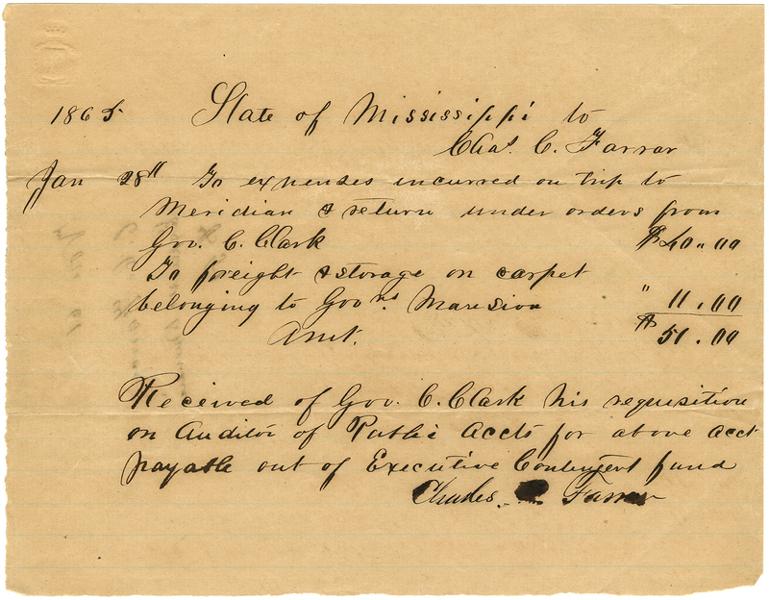 1865 State of Mississippi to
Chas. C. Farrar
Jan 28th To expenses incurred on trip to
Meridian & return under orders from
Gov. C. Clark $40.00
To freight & storage on carpet
belonging to Govrs. Mansion " 11.00
Amt. $51.00
Received of Gov. C. Clark his requisition
on Auditor of Public Accts for above acct
payable out of Executive Contingent fund
Charles Farrar